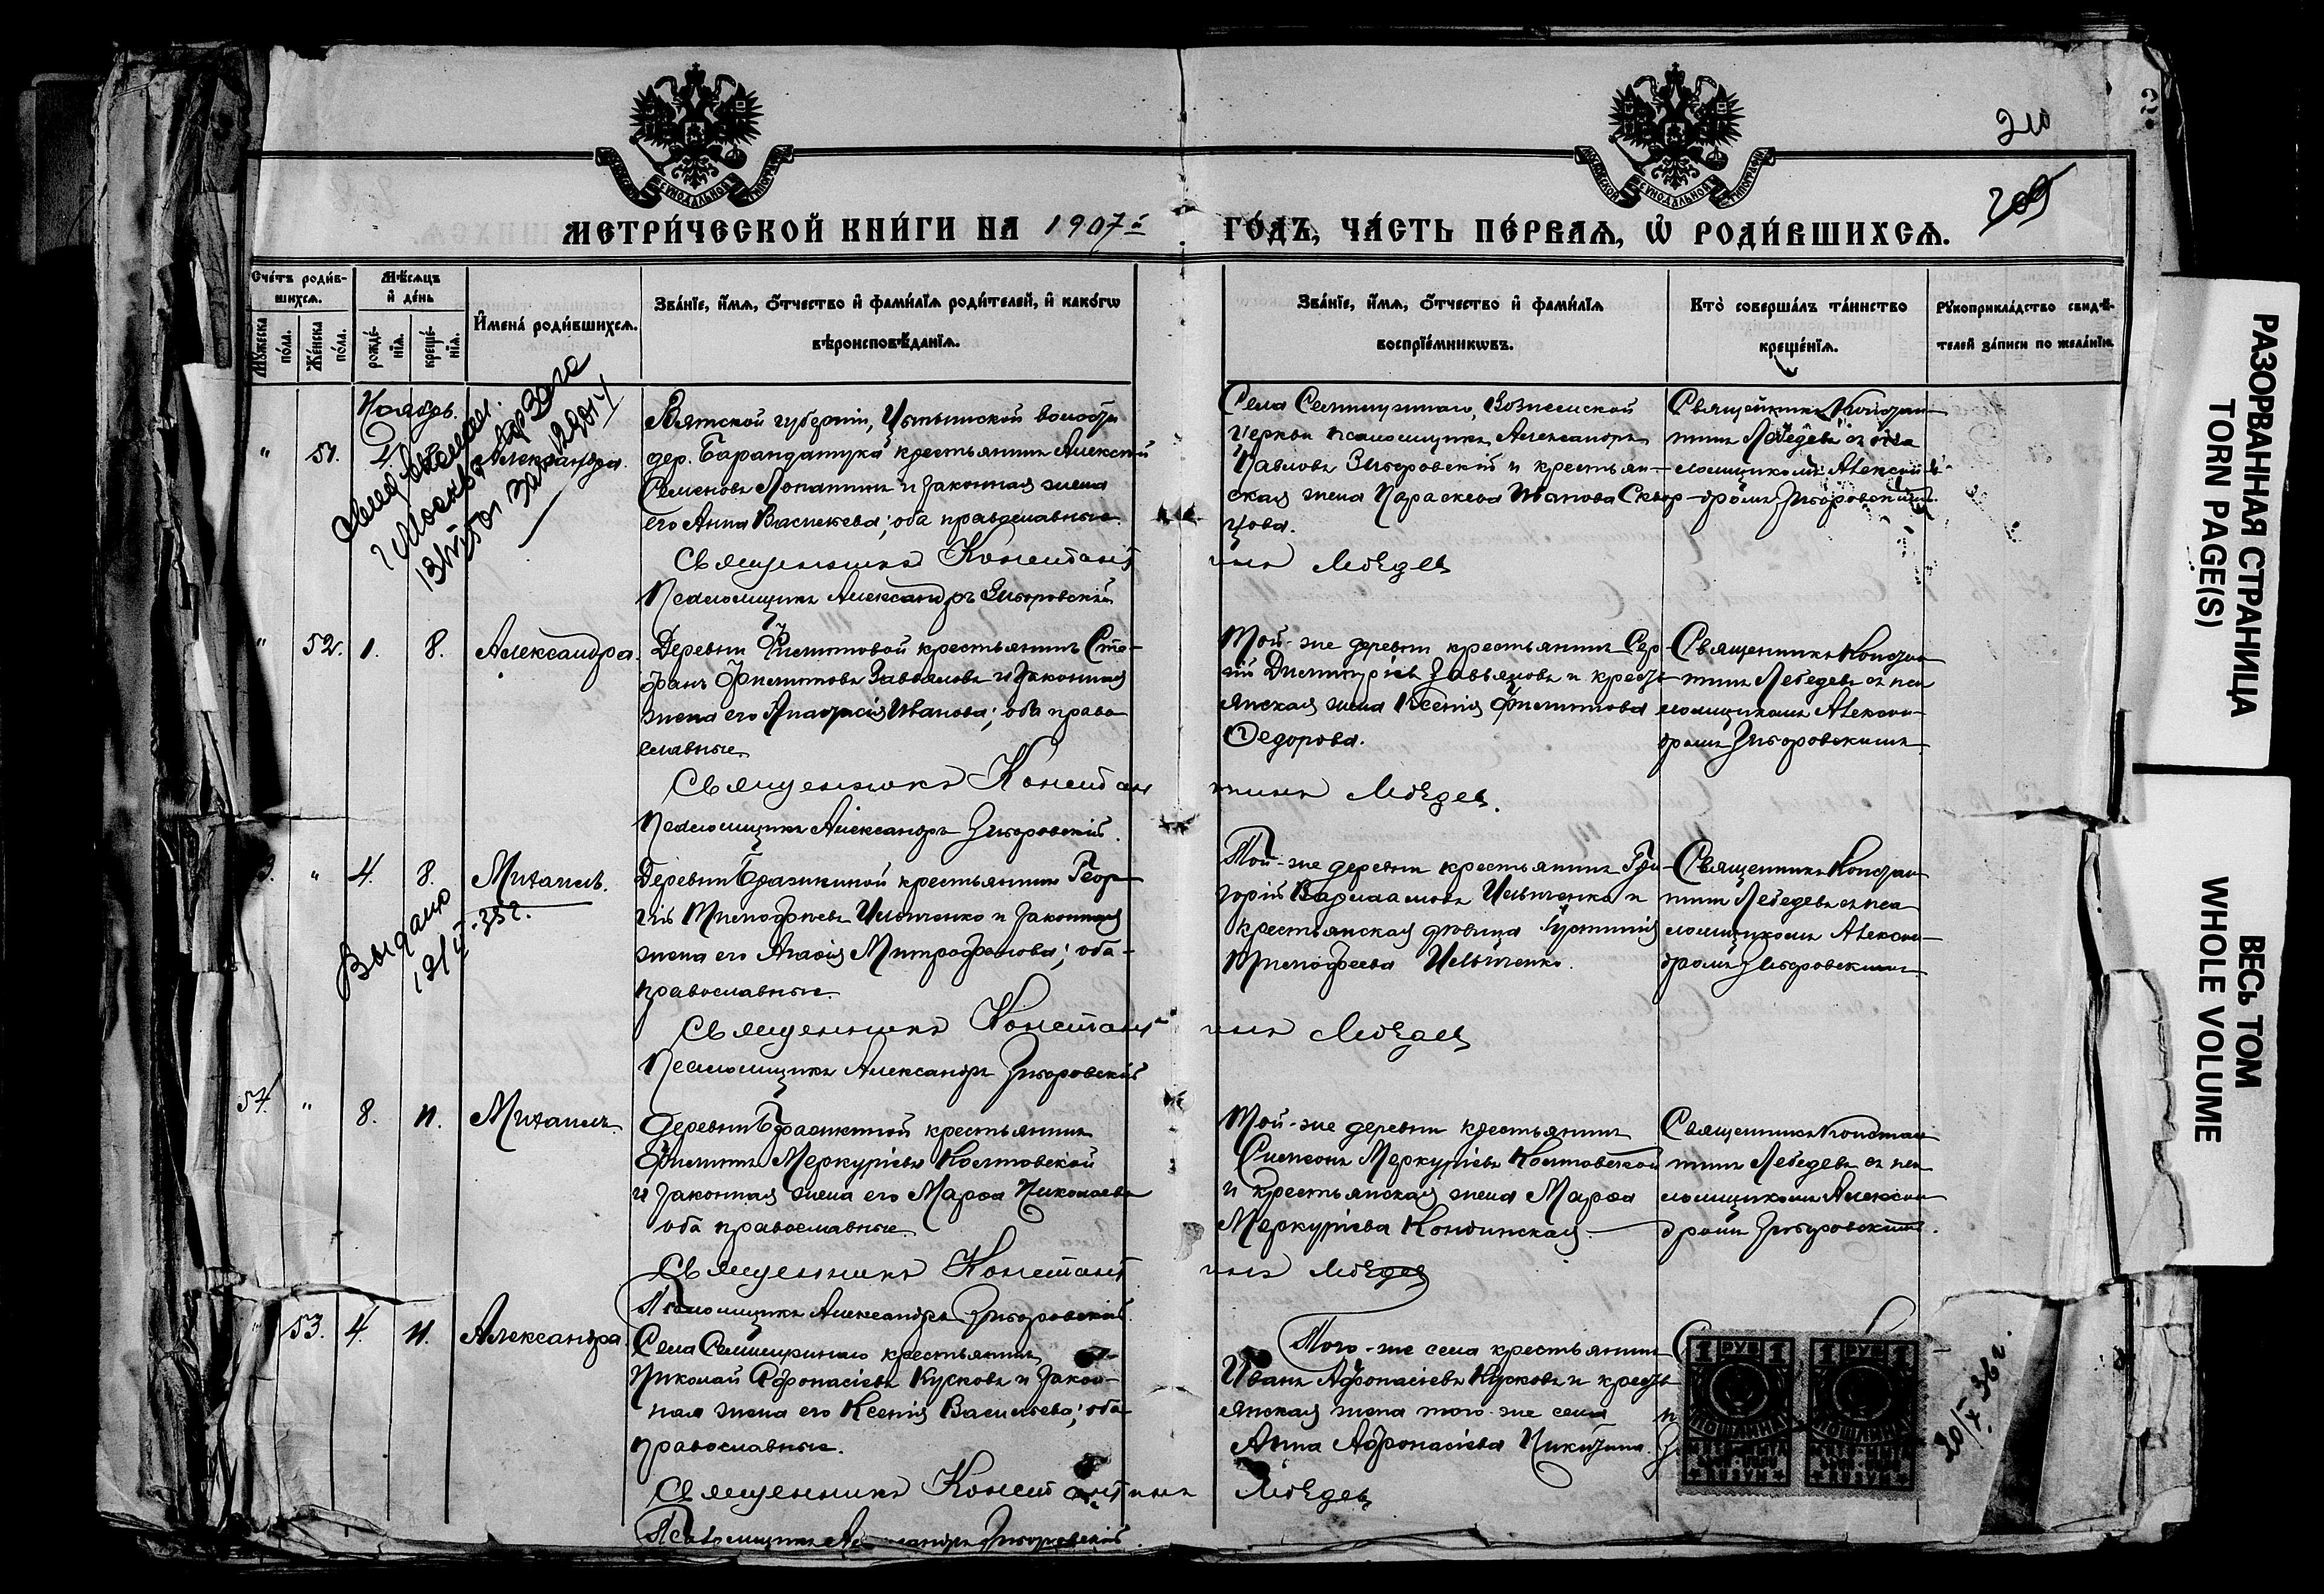 210
209
МЕТРИ́ЧЕСКОЙ КНИ́ГИ НА 1907-й ГО́ДЪ, ЧА́СТЬ ПЕ́РВАѦ, Ѡ҆ РОДИ́ВШИХСѦ.
Счéтъ роди́в-
шихсѧ.
Мꙋ́жеска
по́ла.
Же́нска
по́ла.
Мѣ́сѧцъ
и҆ де́нь
рожде́-
нїѧ.
креще́-
нїѧ.
И҆мена̀ роди́вшихсѧ.
Зва́нїе, и҆́мѧ, ѻ҆́тчество и҆ фами́лїѧ роди́телей, и҆ како́гѡ
вѣроисповѣ́данїѧ.
Зва́нїе, и҆́мѧ, ѻ҆́тчество и҆ фами́лїѧ
воспрїе́мникѡвъ.
Кто̀ соверша́лъ та́инство
креще́нїѧ.
Рꙋкоприкла́дство свидѣ́-
телей за́писи по жела́нїю.
Ноябрь.
" 51.
Александра.
Вятской губерніи,
дер. крестьянинъ Алексій
Семеновъ Лопатинъ и законная жена
его Анна Васильева; оба православные.
Священникъ Константинъ Лебедев
Псаломщикъ Александръ Зигоровскій
Села Вознесенской
церкви псаломщикъ Александръ
Павловъ Зигоровскій и крестьян-
ская жена Параскева Иванова Сквор-
цова.
Священникъ Констан-
тинъ Лебедевъ съ пса
ломщикомъ Алексан-
дромъ Зигоровскимъ.
" 52. 1. 8. Александра.
Деревни Филиповой крестьянинъ Сте-
фанъ Филиповъ Завьяловъ и законная
жена его Анастасія Иванова; оба право
славные.
Священникъ Константинъ Лебедев.
Псаломщикъ Александръ Зигоровскій.
Той-же деревни крестьянинъ Сер-
гій Димитріевъ Завьяловъ и кресть
янская жена Ксенія Филиппова
Федорова.
Священникъ Констан
тинъ Лебедевъ съ пса
ломщикомъ Алексан-
дромъ Зигоровскимъ.
" 4. 8. Михаилъ.
Выдано
19/II-35г.
Деревни Бражкиной крестьянинъ Геор-
гій Тимофеевъ Ильченко и законная
жена его Агафія Митрофанова; оба-
православные.
Священникъ Константинъ Лебедев
Псаломщикъ Александръ Зигоровскій
Той-же деревни крестьянинъ Гри-
горій Варлаамовъ Ильченко и
крестьянская дѣвица Іустинія
Тимофеева Ильченко.
Священникъ Констан
тинъ Лебедевъ съ пса
ломщикомъ Алексан-
дромъ Зигоровскимъ
54. " 8. 11. Михаилъ.
Деревни Бражкиной крестьянинъ
Филиппъ Меркуріевъ
и законная жена его Марфа Николаева
оба православные.
Священникъ Константинъ Лебедев
Псаломщикъ Александръ Зигоровскій.
Той-же деревни крестьянинъ
Симеонъ Меркуріевъ
и крестьянская жена Марфа
Меркуріева Кондинская.
Священникъ Константин
тинъ Лебедевъ съ пса
ломщикомъ Алексан
дромъ Зигоровскимъ.
" 53. 4. 11. Александра.
Села крестьянинъ
Николай Афонасіевъ Кусковъ и закон-
ная жена его Ксенія Васильева; оба
православные.
Священникъ Константинъ Лебедев
Псаломщикъ Александръ Зигоровскій.
Того-же села крестьянинъ
Иванъ Афонасіевъ Кусковъ и кресть
янская жена того-же села
Анна Афонасіева Никитина.
1 РУБ 1
ПОШЛИНА
1 РУБ 1
ПОШЛИНА
20/X 36г.
РАЗОРВАННАЯ СТРАНИЦА
TORN PAGE(S)
ВЕСЬ ТОМ
WHOLE VOLUME